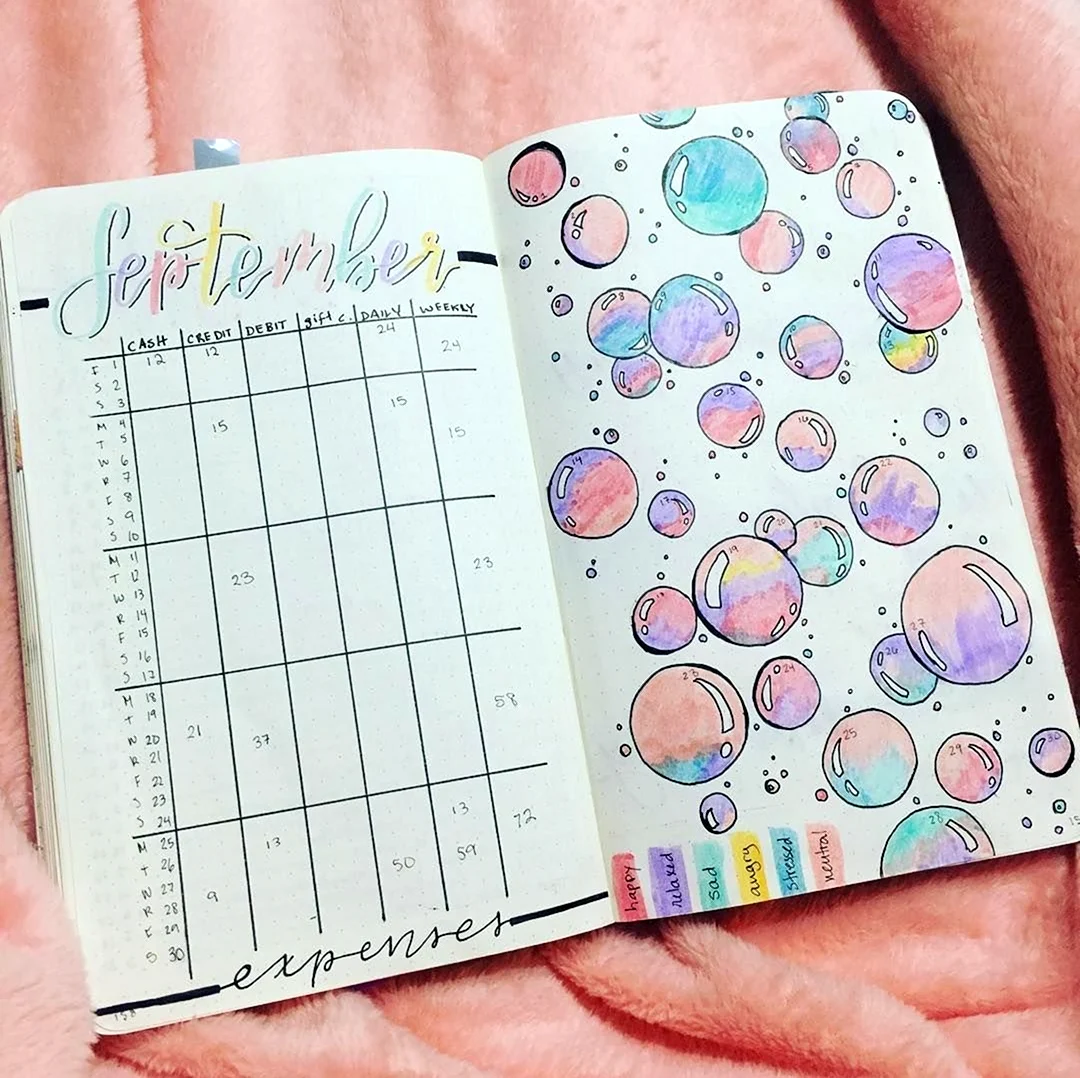 September
CASH CREDIT DEBIT gift c. DAILY WEEKLY
F 1 12 12 24 24
S 2
S 3
M 4 15
T 5 15 15
W 6
R 7
F 8
S 9
S 10
M 11
T 12 23 23
W 13
R 14
F 15
S 16
S 17
M 18 58
T 19
W 20 21 37
R 21
F 22
S 23
S 24 13 72
M 25 13
T 26 50 59
W 27 9
R 28
F 29
S 30
expenses
158
3
8
11
13
15
16
14
17
22
20 21
19
27
26
23 24
25
29 30
28
happy relaxed sad angry stressed neutral